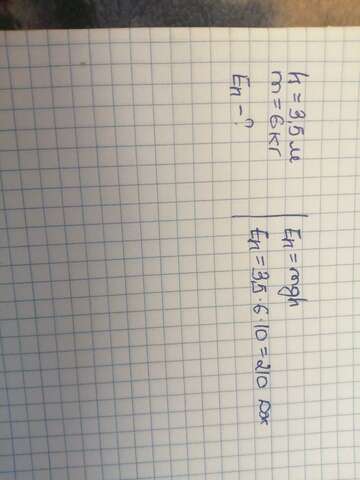 h = 3,5 м
m = 6 кг
Eп - ?
Eп = mgh
Eп = 3,5 · 6 · 10 = 210 Дж